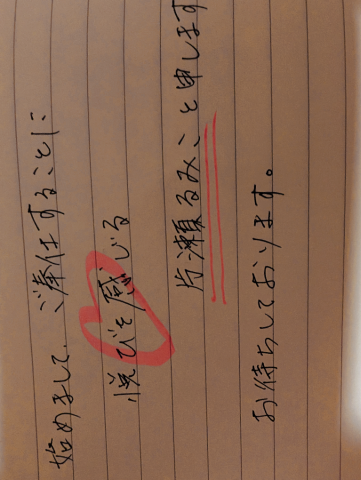 始めまして、ご奉仕することに
悦びを感じる
片瀬るみこと申します
お待ちしております。